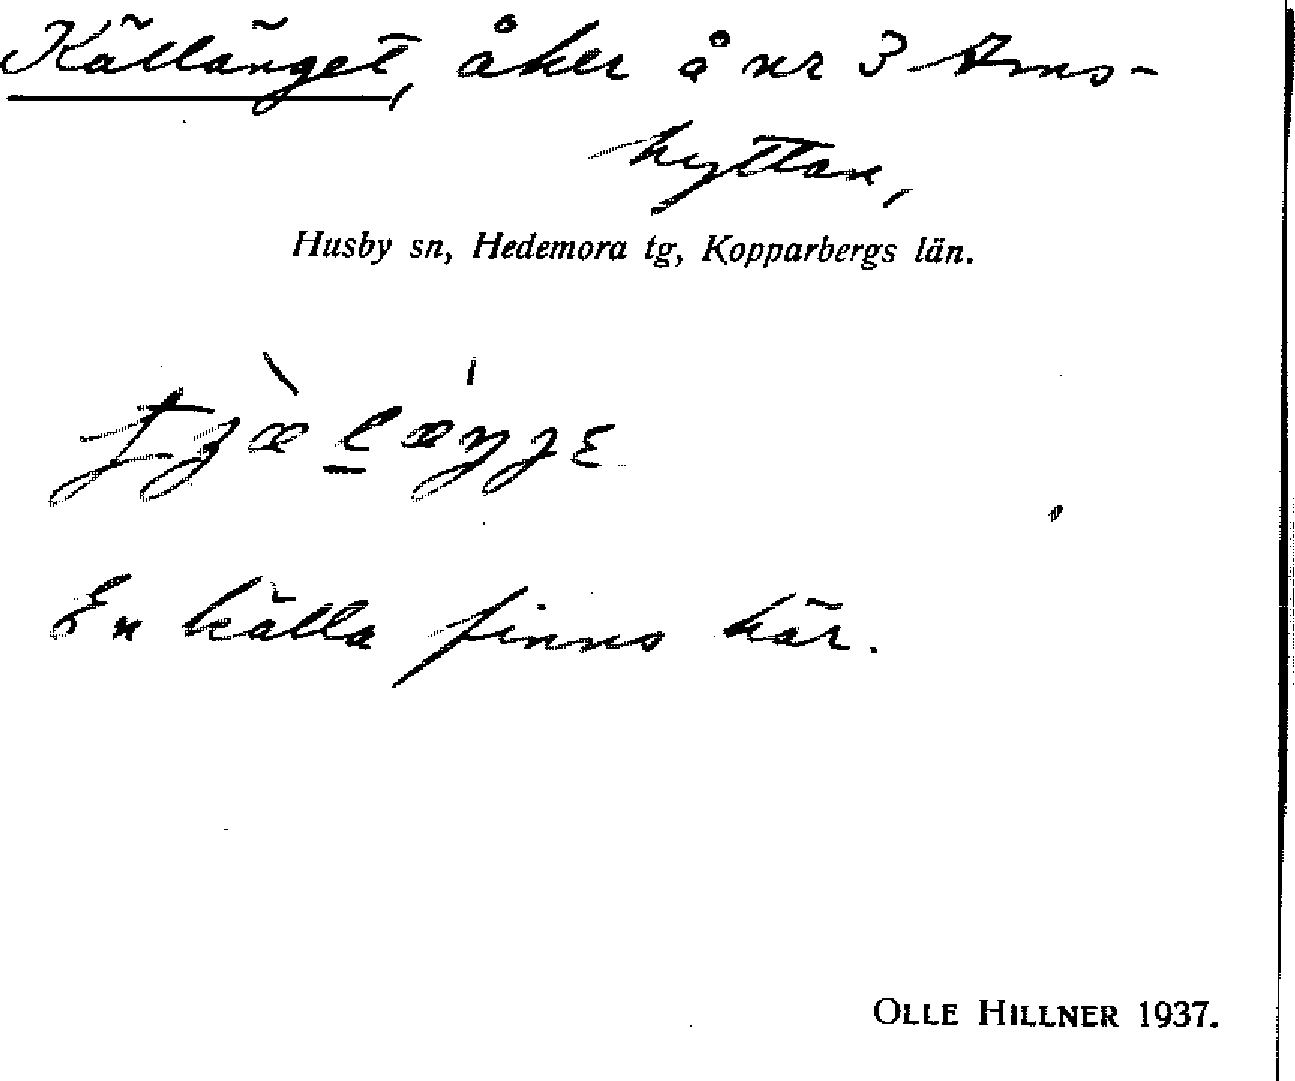 Källänget, åker å nr 3 Ams-
hyttan,
Husby sn, Hedemora tg, Kopparbergs län.
En källa finns här.
OLLE HILLNER 1937.